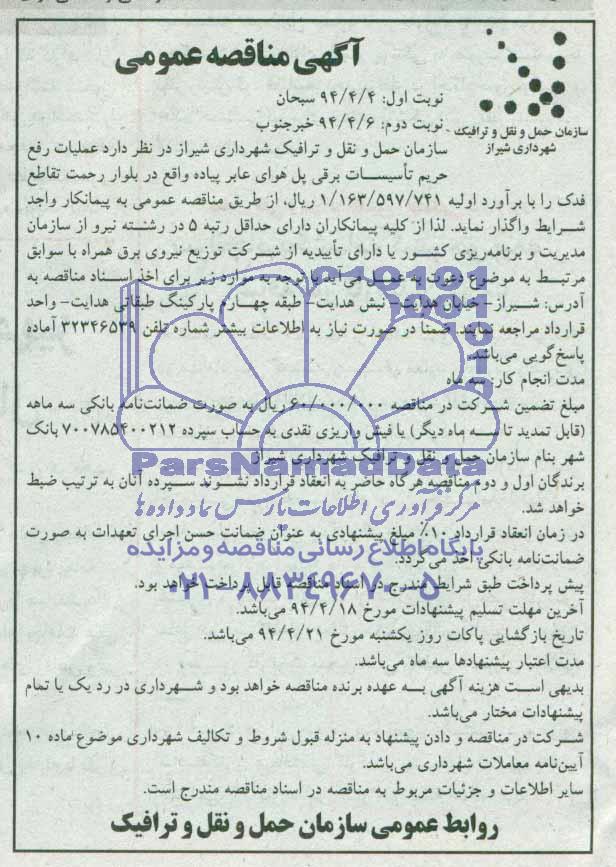 آگهی مناقصه عمومی
سازمان حمل و نقل و ترافیک
شهرداری شیراز
نوبت اول: ۹۴/۴/۴ سبحان
نوبت دوم: ۹۴/۴/۶ خبرجنوب
سازمان حمل و نقل و ترافیک شهرداری شیراز در نظر دارد عملیات رفع
حریم تأسیسات برقی پل هوای عابر پیاده واقع در بلوار رحمت تقاطع
فدک را با برآورد اولیه ۱/۱۶۳/۵۹۷/۷۴۱ ریال، از طریق مناقصه عمومی به پیمانکار واجد
شرایط واگذار نماید. لذا از کلیه پیمانکاران دارای حداقل رتبه ۵ در رشته نیرو از سازمان
مدیریت و برنامه‌ریزی کشور یا دارای تأییدیه از شرکت توزیع نیروی برق همراه با سوابق
مرتبط به موضوع دعوت به عمل می‌آید با توجه به موارد زیر برای اخذ اسناد مناقصه به
آدرس: شیراز- خیابان هدایت- نبش هدایت- طبقه چهارم پارکینگ طبقاتی هدایت- واحد
قرارداد مراجعه نمایند. ضمناً در صورت نیاز به اطلاعات بیشتر شماره تلفن ۳۲۳۴۶۵۳۹ آماده
پاسخ‌گویی می‌باشد.
مدت انجام کار: سه ماه
مبلغ تضمین شرکت در مناقصه ۶۰/۰۰۰/۰۰۰ ریال به صورت ضمانت‌نامه بانکی سه ماهه
(قابل تمدید تا سه ماه دیگر) یا فیش واریزی نقدی به حساب سپرده ۷۰۰۷۸۵۴۰۰۲۱۲ بانک
شهر بنام سازمان حمل و نقل و ترافیک شهرداری شیراز
برندگان اول و دوم مناقصه هرگاه حاضر به انعقاد قرارداد نشوند سپرده آنان به ترتیب ضبط
خواهد شد.
در زمان انعقاد قرارداد ۱۰٪ مبلغ پیشنهادی به عنوان ضمانت حسن اجرای تعهدات به صورت
ضمانت‌نامه بانکی اخذ می‌گردد.
پیش پرداخت طبق شرایط مندرج در اسناد مناقصه قابل پرداخت خواهد بود.
آخرین مهلت تسلیم پیشنهادات مورخ ۹۴/۴/۱۸ می‌باشد.
تاریخ بازگشایی پاکات روز یکشنبه مورخ ۹۴/۴/۲۱ می‌باشد.
مدت اعتبار پیشنهادها سه ماه می‌باشد.
بدیهی است هزینه آگهی به عهده برنده مناقصه خواهد بود و شهرداری در رد یک یا تمام
پیشنهادات مختار می‌باشد.
شرکت در مناقصه و دادن پیشنهاد به منزله قبول شروط و تکالیف شهرداری موضوع ماده ۱۰
آیین‌نامه معاملات شهرداری می‌باشد.
سایر اطلاعات و جزئیات مربوط به مناقصه در اسناد مناقصه مندرج است.
روابط عمومی سازمان حمل و نقل و ترافیک
ParsNamadData
مرکز فرآوری اطلاعات پارس نماد داده‌ها
پایگاه اطلاع رسانی مناقصه و مزایده
۰۲۱-۸۸۳۴۹۶۷۰-۵